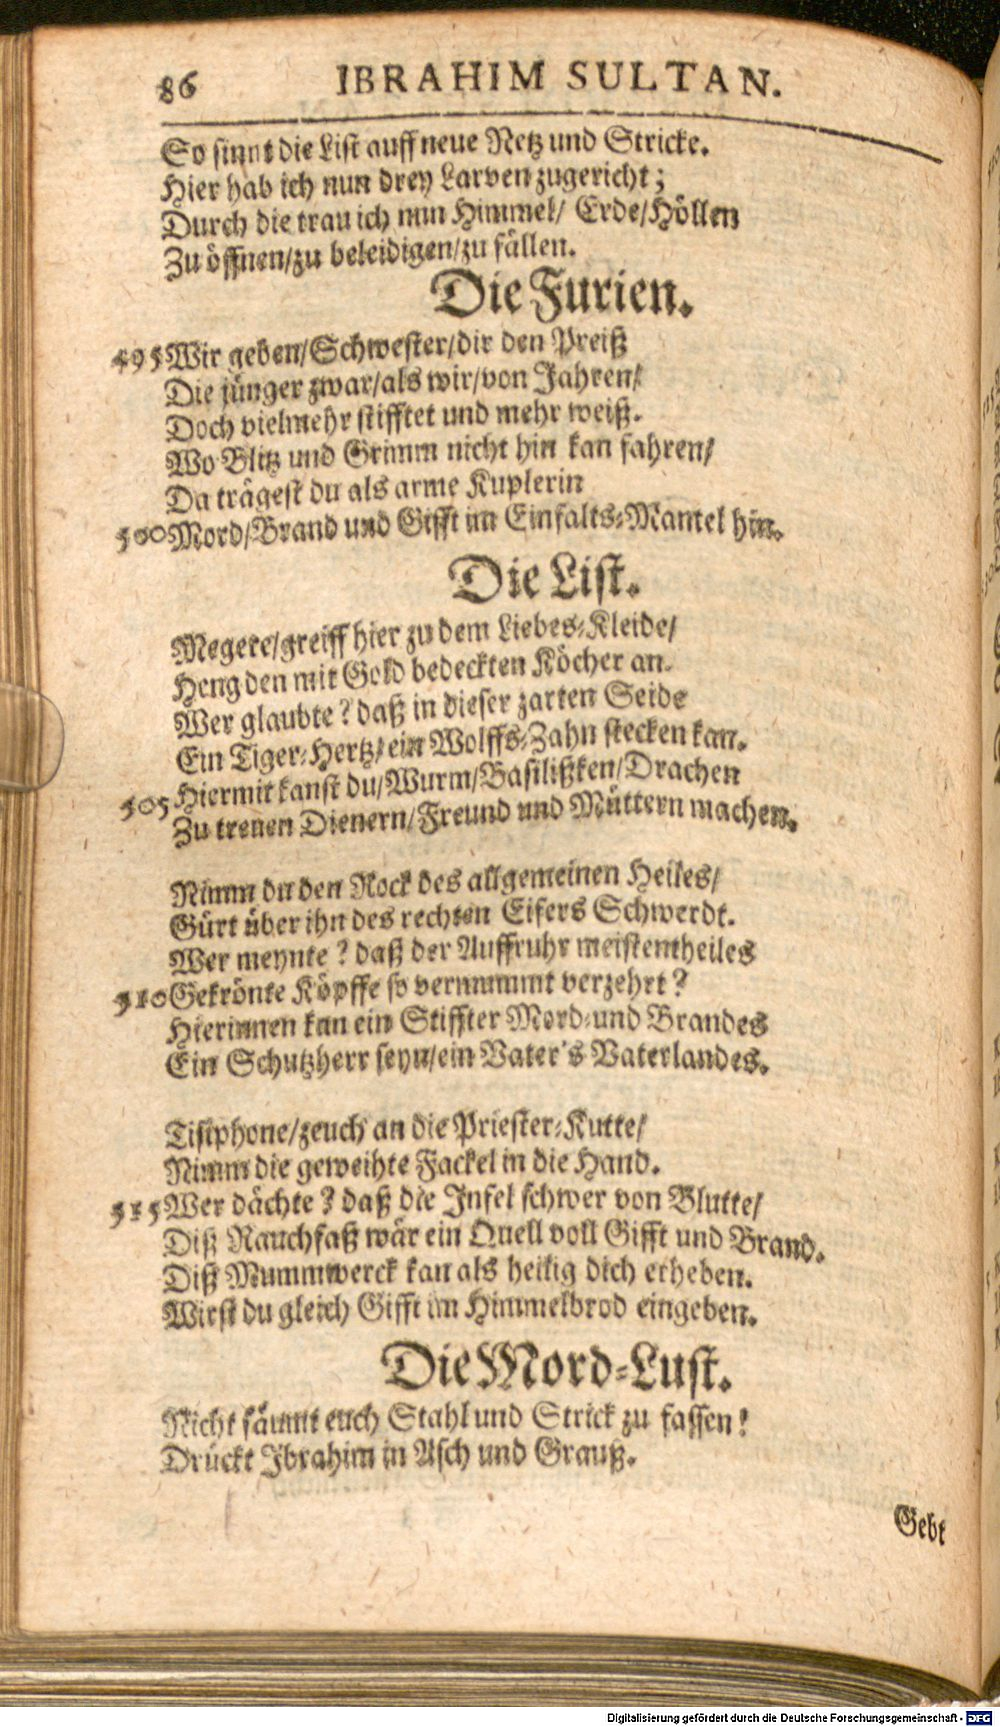 86 IBRAHIM SULTAN.
So sinnt die List auff neue Netz und Stricke.
Hier hab ich nun drey Larven zugericht;
Durch die trau ich mm Himmel/ Erde/Höllen
Zu öffnen/zu beleidigen/zu fällen.
Die Furien.
495 Wir geben/Schwester/dir den Preiß
Die jünger zwar/als wir/von Jahren/
Doch vielmehr stifftet und mehr weiß.
Wo Blitz und Grimm nicht hin kan fahren/
Da trägest du als arme Kuplerin
500 Mord/Brand und Gifft im Einfalts-Mantel hin.
Die List.
Megere/greiff hier zu dem Liebes-Kleide/
Heng den mit Gold bedeckten Köcher an.
Wer glaubte? daß in dieser zarten Seide
Ein Tiger-Hertz/ein Wolffs-Zahn stecken kan.
505 Hiermit kanst du/Wurm/Basilißken/Drachen
Zu treuen Dienern/Freund und Müttern machen.
Nimm du den Rock des allgemeinen Heiles/
Gürt über ihn des rechten Eifers Schwerdt.
Wer meynte? daß der Auffruhr meistentheiles
510 Gekrönte Köpffe so vermummt verzehrt?
Hierinnen kan ein Stiffter Mord-und Brandes
Ein Schutzherr seyn/ein Vater's Vaterlandes.
Tisiphone/zeuch an die Priester-Kutte/
Nimm die geweihte Fackel in die Hand.
515 Wer dächte? daß die Infel schwer von Blutte/
Diß Rauchfaß wär ein Quell voll Gifft und Brand.
Diß Mummwerck kan als heilig dich erheben.
Wirst du gleich Gifft im Himmelbrod eingeben.
Die Mord-Lust.
Nicht säumt euch Stahl und Strick zu fassen!
Drückt Ibrahim in Asch und Grauß.
Gebt
Digitalisierung gefördert durch die Deutsche Forschungsgemeinschaft - DFG